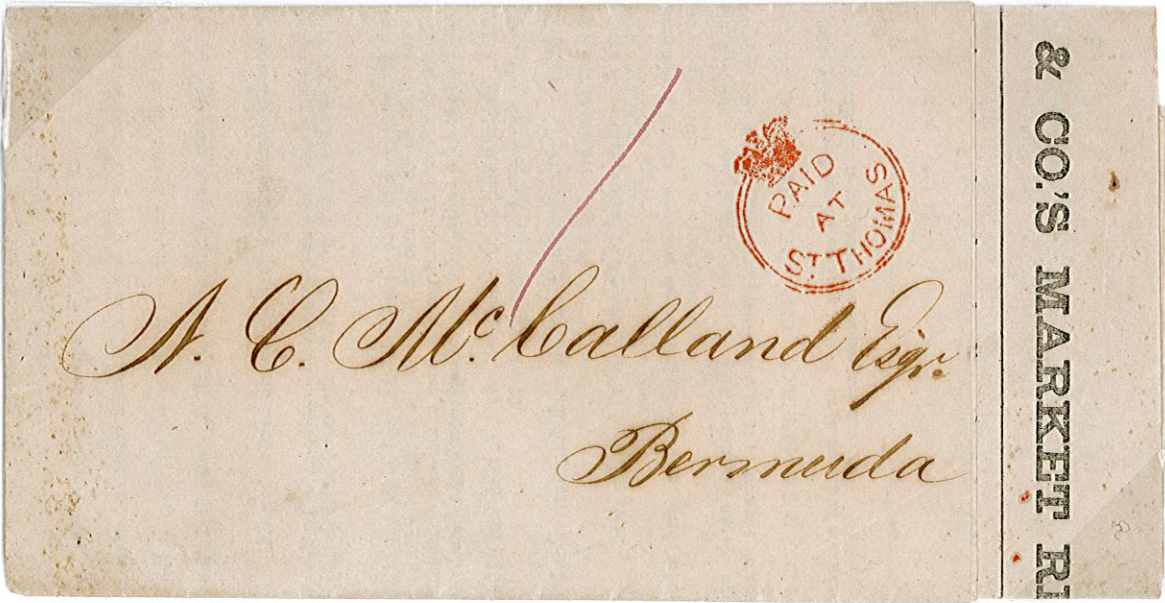 PAID
AT
ST THOMAS
N. C. Mc.Calland Esqr.
Bermuda
& CO.'S MARKET